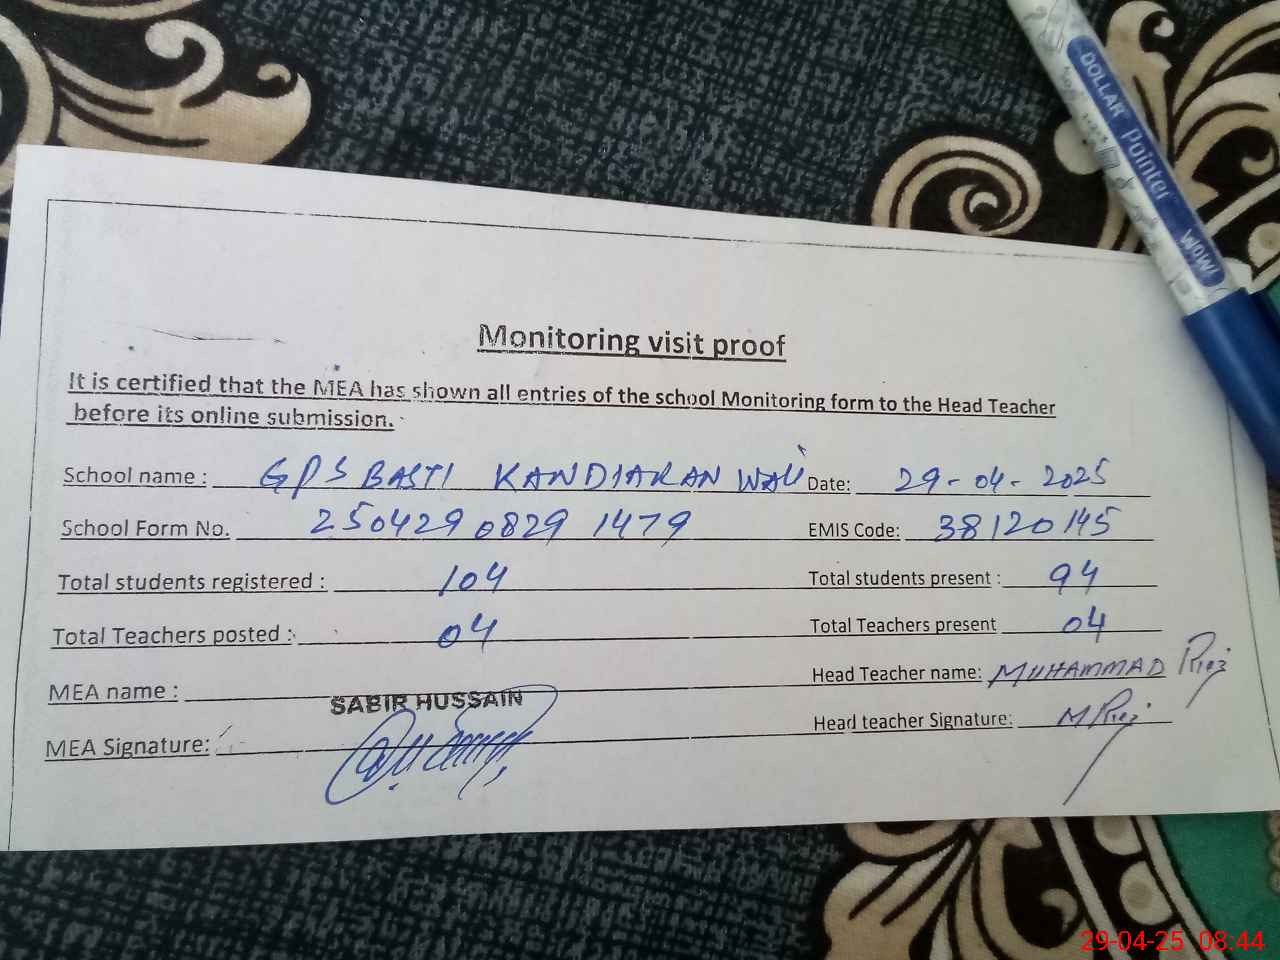 DOLLAR Pointer WOW!
Monitoring visit proof
It is certified that the MEA has shown all entries of the school Monitoring form to the Head Teacher
before its online submission.
School name : GPS BASTI KANDIARAN WALI Date: 29-04-2025
School Form No. 2504290829 1479 EMIS Code: 38120145
Total students registered : 104 Total students present : 94
Total Teachers posted : 04 Total Teachers present 04
MEA name : SABIR HUSSAIN Head Teacher name: MUHAMMAD Riaz
MEA Signature: Head teacher Signature: M Riaz
29-04-25 08:44